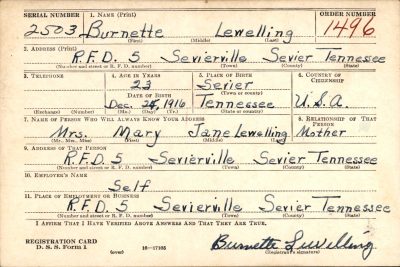 SERIAL NUMBER 1. NAME (Print) ORDER NUMBER
2503 Burnette Lewelling 1496
(First) (Middle) (Last)
2. ADDRESS (Print)
R.F.D. 5 Sevierville Sevier Tennessee
(Number and street or R. F. D. number) (Town) (County) (State)
3. TELEPHONE 4. AGE IN YEARS 5. PLACE OF BIRTH 6. COUNTRY OF CITIZENSHIP
23 Sevier
DATE OF BIRTH (Town or county)
Dec. 1916 Tennessee U.S.A.
(Exchange) (Number) (Mo.) (Day) (Yr.) (State or country)
7. NAME OF PERSON WHO WILL ALWAYS KNOW YOUR ADDRESS 8. RELATIONSHIP OF THAT PERSON
Mrs. Mary Jane Lewelling Mother
(Mr. Mrs. Miss) (First) (Middle) (Last)
9. ADDRESS OF THAT PERSON
R.F.D. 5 Sevierville Sevier Tennessee
(Number and street or R. F. D. number) (Town) (County) (State)
10. EMPLOYER'S NAME
Self
11. PLACE OF EMPLOYMENT OR BUSINESS
R.F.D. 5 Sevierville Sevier Tennessee
(Number and street or R. F. D. number) (Town) (County) (State)
I AFFIRM THAT I HAVE VERIFIED ABOVE ANSWERS AND THAT THEY ARE TRUE.
REGISTRATION CARD
D. S. S. Form 1 (over) 16—17105 Burnette Lewelling
(Registrant's signature)